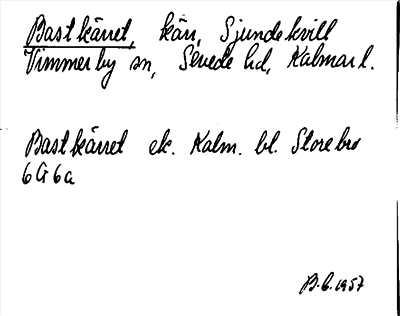 Bastkärret, kärr, Sjundekvill
Vimmerby sn, Sevede hd, Kalmar l.
Bastkärret ek. Kalm. bl. Storebro
6G6a
B.E. 1957